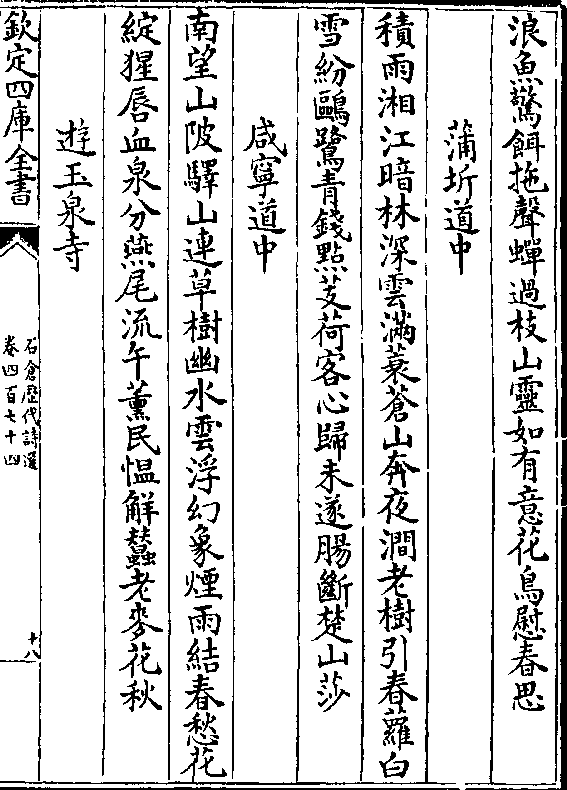 浪魚驚餌拖聲蟬過枝山靈如有意花鳥慰春思
蒲圻道中
積雨湘江暗林深雲滿蓑蒼山奔夜澗老樹引春蘿白
雪紛鷗鷺青錢點芰荷客心歸未遂腸斷楚山莎
咸寧道中
南望山陂驛山連草樹幽水雲浮幻象煙雨結春愁花
綻猩唇血泉分燕尾流午薰民愠解蠶老麥花秋
遊玉泉寺
欽定四庫全書
石倉歷代詩選
卷四百七十四
十八